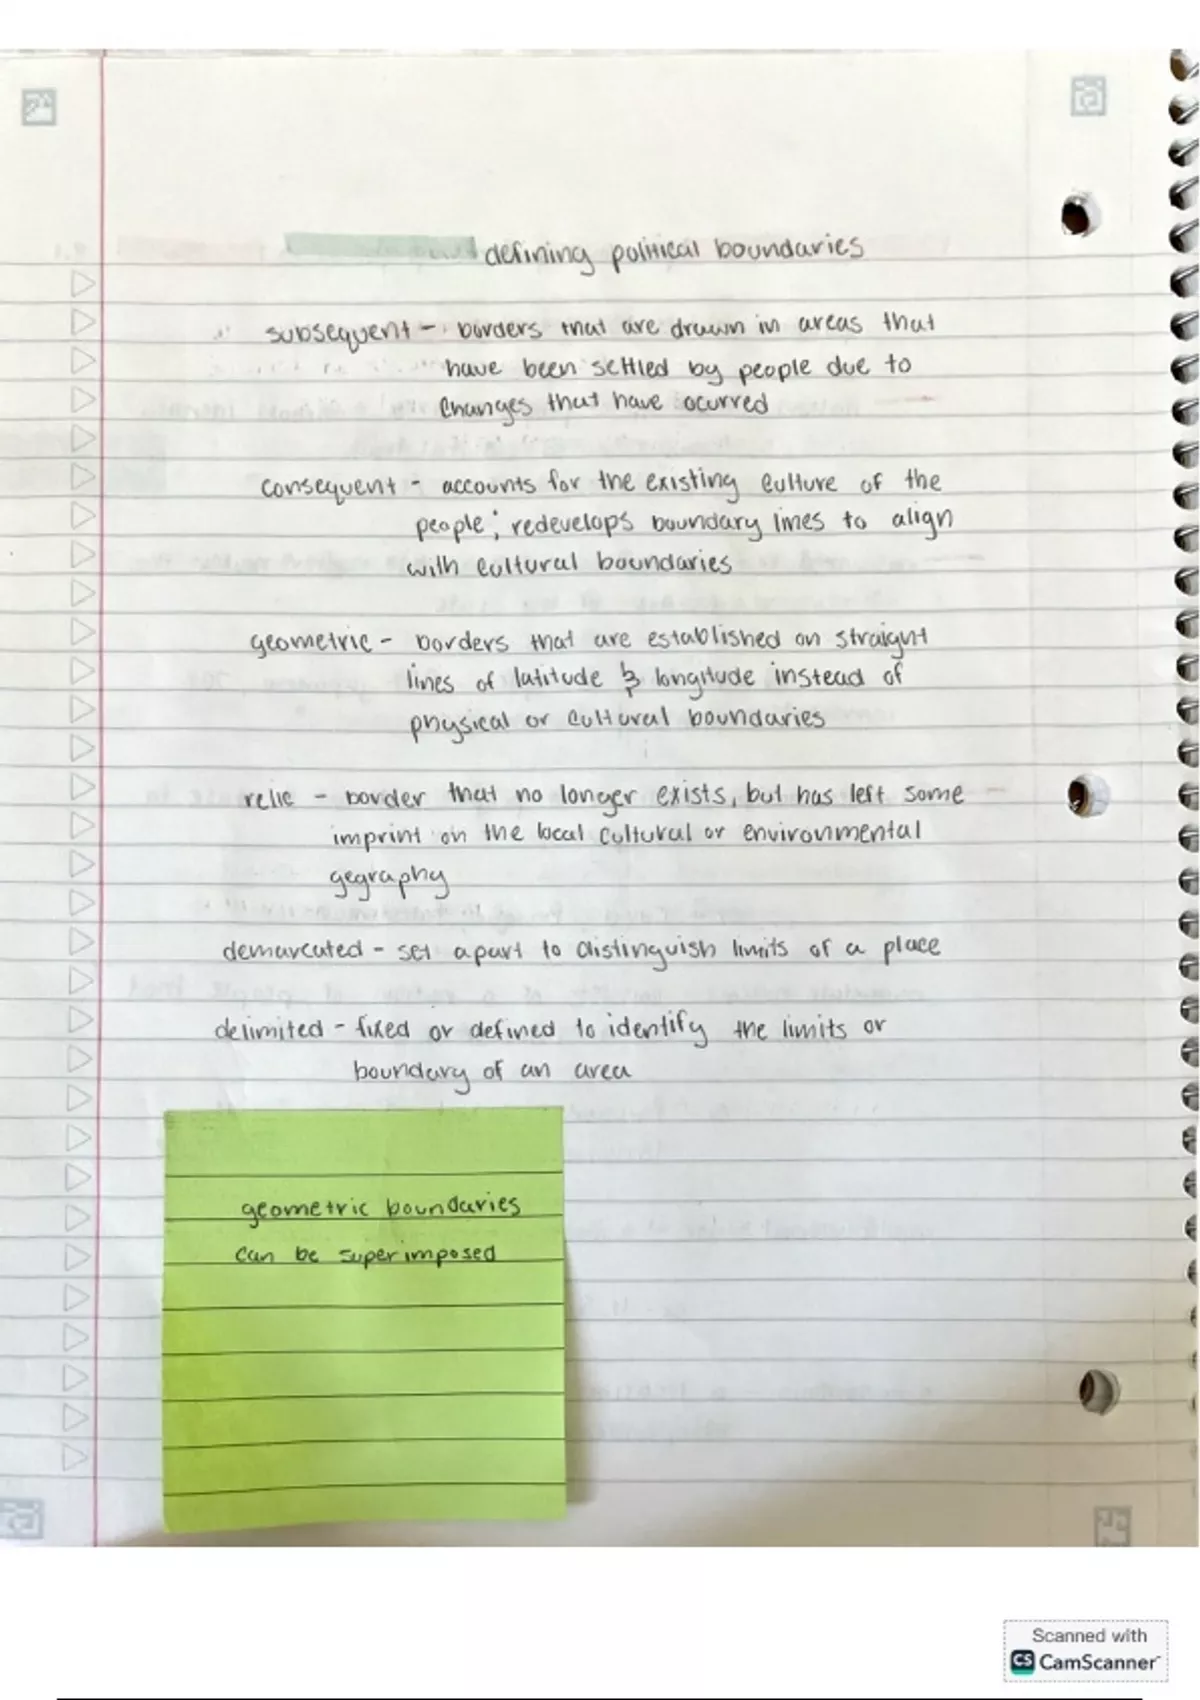 defining political boundaries
subsequent - borders that are drawn in areas that
have been settled by people due to
changes that have ocurred
consequent - accounts for the existing culture of the
people; redevelops boundary lines to align
with cultural boundaries
geometric - borders that are established on straight
lines of latitude & longitude instead of
physical or cultural boundaries
relic - border that no longer exists, but has left some
imprint on the local cultural or environmental
gegraphy
demarcated - set apart to distinguish limits of a place
delimited - fixed or defined to identify the limits or
boundary of an area
geometric boundaries
can be superimposed
Scanned with
CS CamScanner